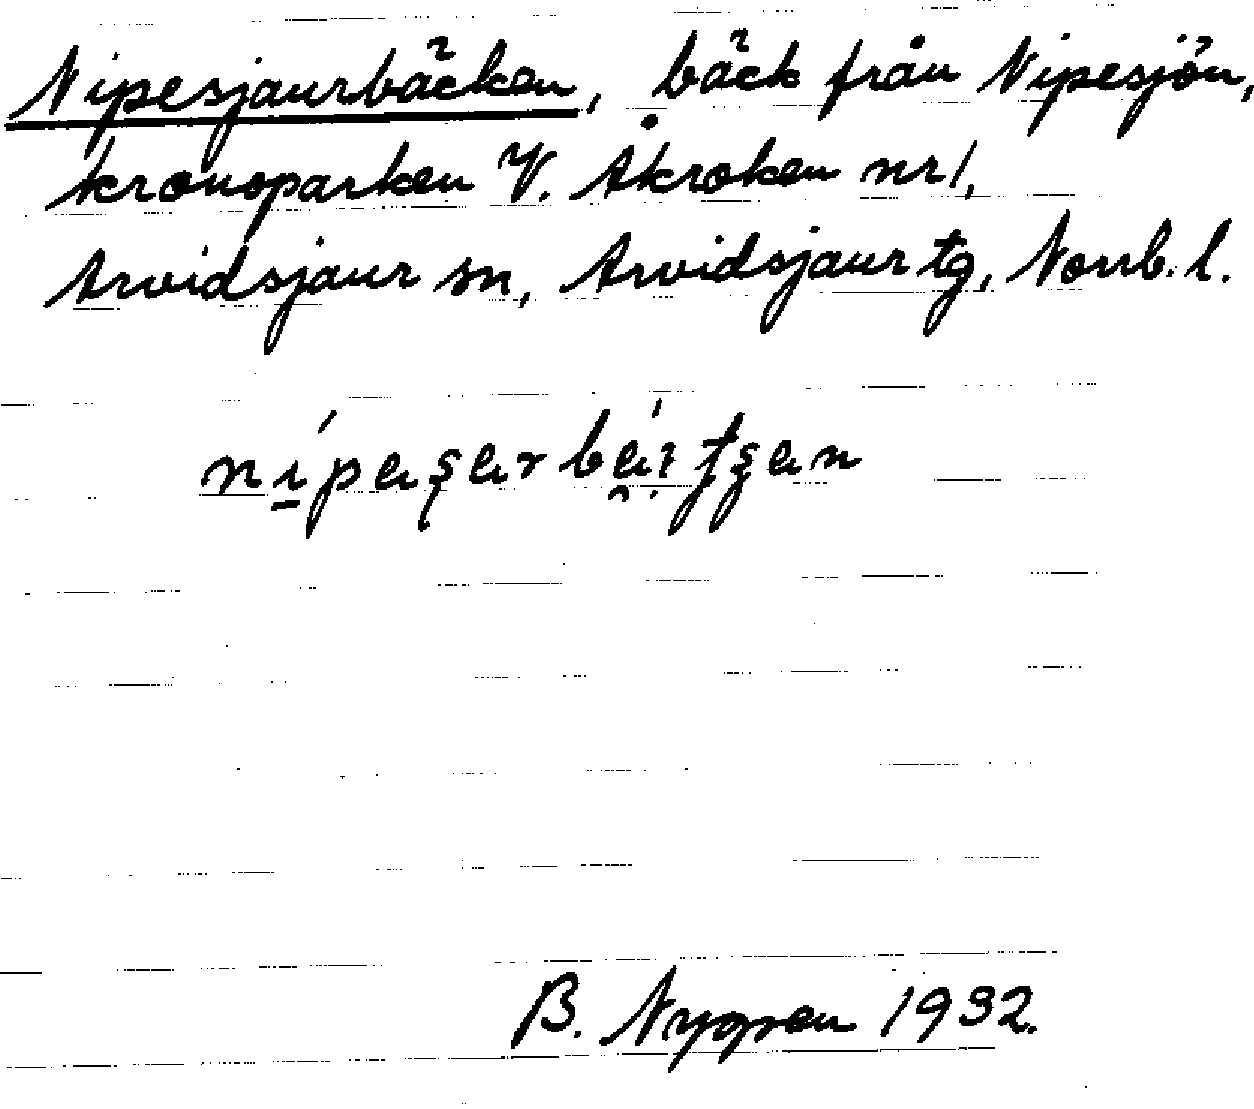 Nipesjaurbäcken, bäck från Nipesjön,
kronoparken V. Åkroken nr 1,
Arvidsjaur sn, Arvidsjaur tg, Norrb. l.
B. Nygren 1932.